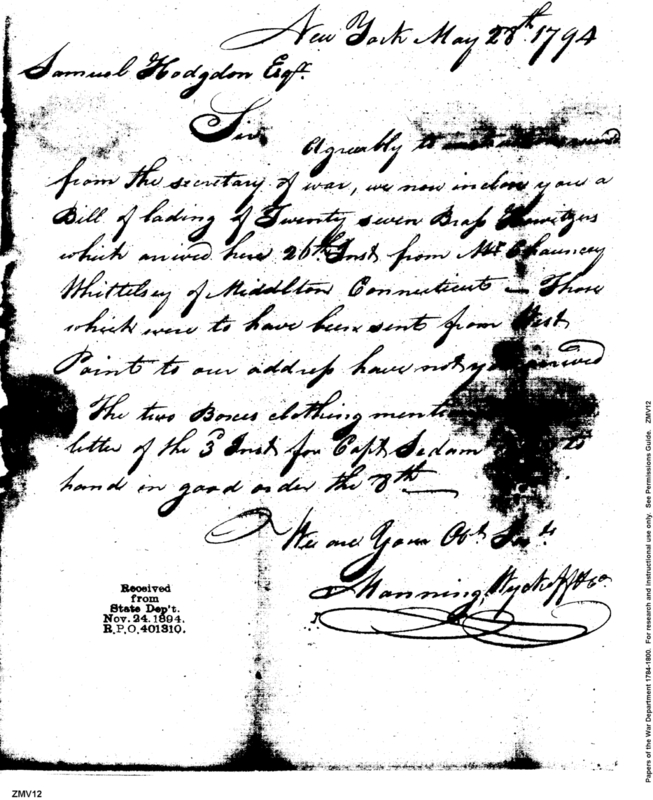 New York May 28th. 1794
Samuel Hodgdon Esqr.
Sir,
Agreably to
from the secretary of war, we now inclose you a
Bill of lading of Twenty seven Brass Howitzers
which arrived here 26th Inst from Mr Chauncey
Whittelsey of Middlton Connecticut — Those
which were to have been sent from West
Point to our address have not yet arrived
The two Boxes clothing
letter of the 3d Inst for Capt Sedam to
hand in good order the 8th
We are Your Obt. Servts
Manning, Wyckoff & Co
Received
from
State Dep't.
Nov. 24. 1894.
R.P.O. 401310.
Papers of the War Department 1784-1800. For research and instructional use only. See Permissions Guide. ZMV12
ZMV12